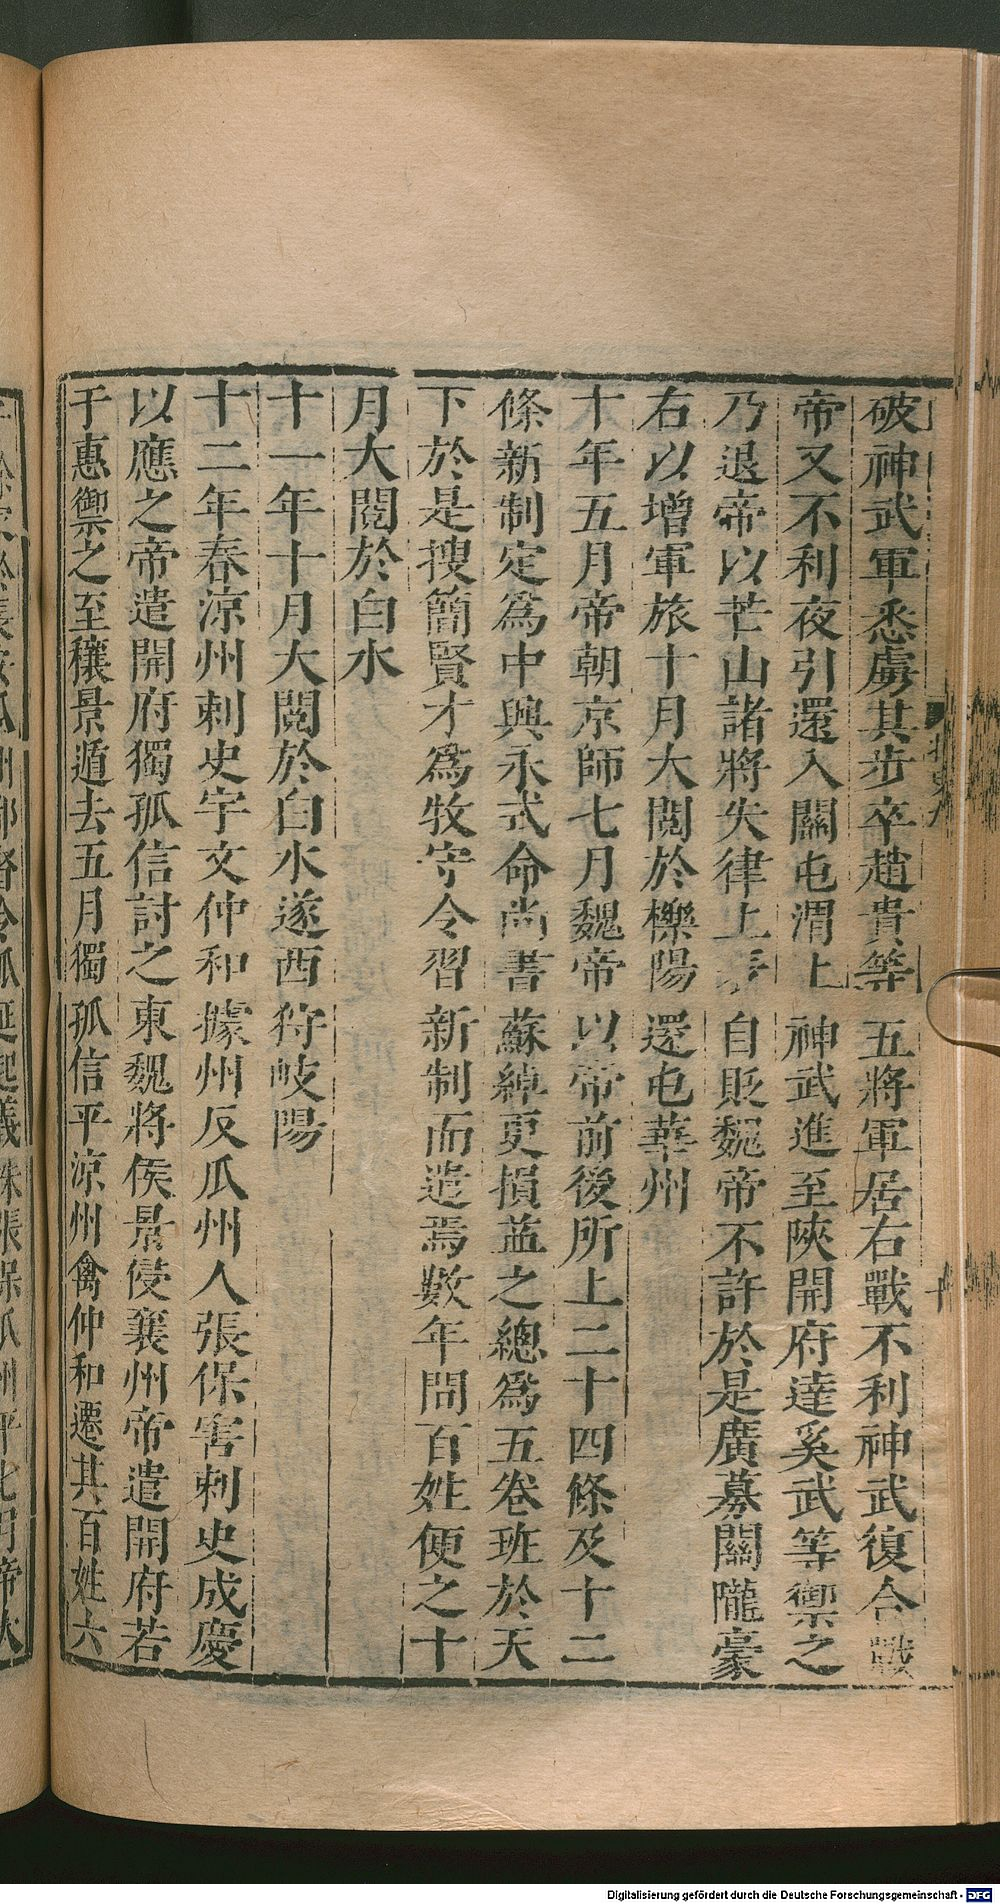 破神武軍悉虜其步卒趙貴等五將軍居右戰不利神武復合戰
帝又不利夜引還入關屯渭上神武進至陝開府達奚武等禦之
乃退帝以芒山諸將失律上表自貶魏帝不許於是廣募關隴豪
右以增軍旅十月大閱於櫟陽還屯華州
十年五月帝朝京師七月魏帝以帝前後所上二十四條及十二
條新制定爲中興永式命尚書蘇綽更損益之總爲五卷班於天
下於是搜簡賢才爲牧守令習新制而遣焉數年間百姓便之十
月大閱於白水
十一年十月大閱於白水遂西狩岐陽
十二年春涼州刺史宇文仲和據州反瓜州人張保害刺史成慶
以應之帝遣開府獨孤信討之東魏將侯景侵襄州帝遣開府若
于惠禦之至穰景遁去五月獨孤信平涼州禽仲和遷其百姓六
Digitalisierung gefördert durch die Deutsche Forschungsgemeinschaft - DFG